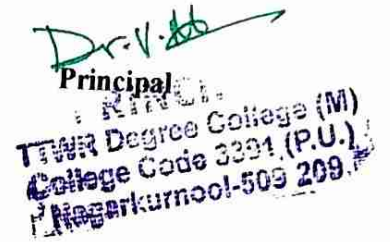 Dr. V.
Principal
PRINCI
TTWR Degree College (M)
College Code 3391 (P.U.)
Nagarkurnool-509 209.